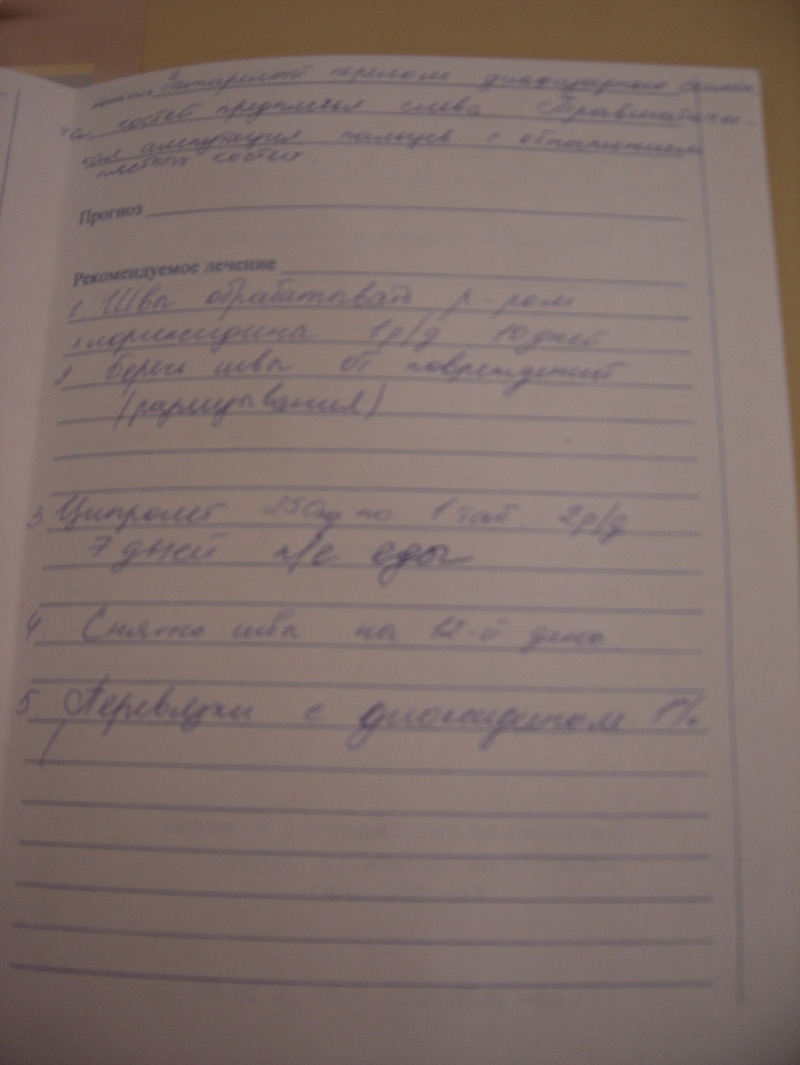 перелом диафизарного
костей предплечья слева. Травматичес-
кая ампутация пальцев с обнажением
костей.
Прогноз
Рекомендуемое лечение
1. Швы обрабатывать р-ром
хлоргексидина 1р/д 10 дней
2. Беречь швы от повреждений
(разлизывания)
3 Ципролет 250мг по 1 таб. 2р/д
7 дней п/е еды
4. Снятие швы на 12-й день.
5. Перевязки с диоксидином 1%